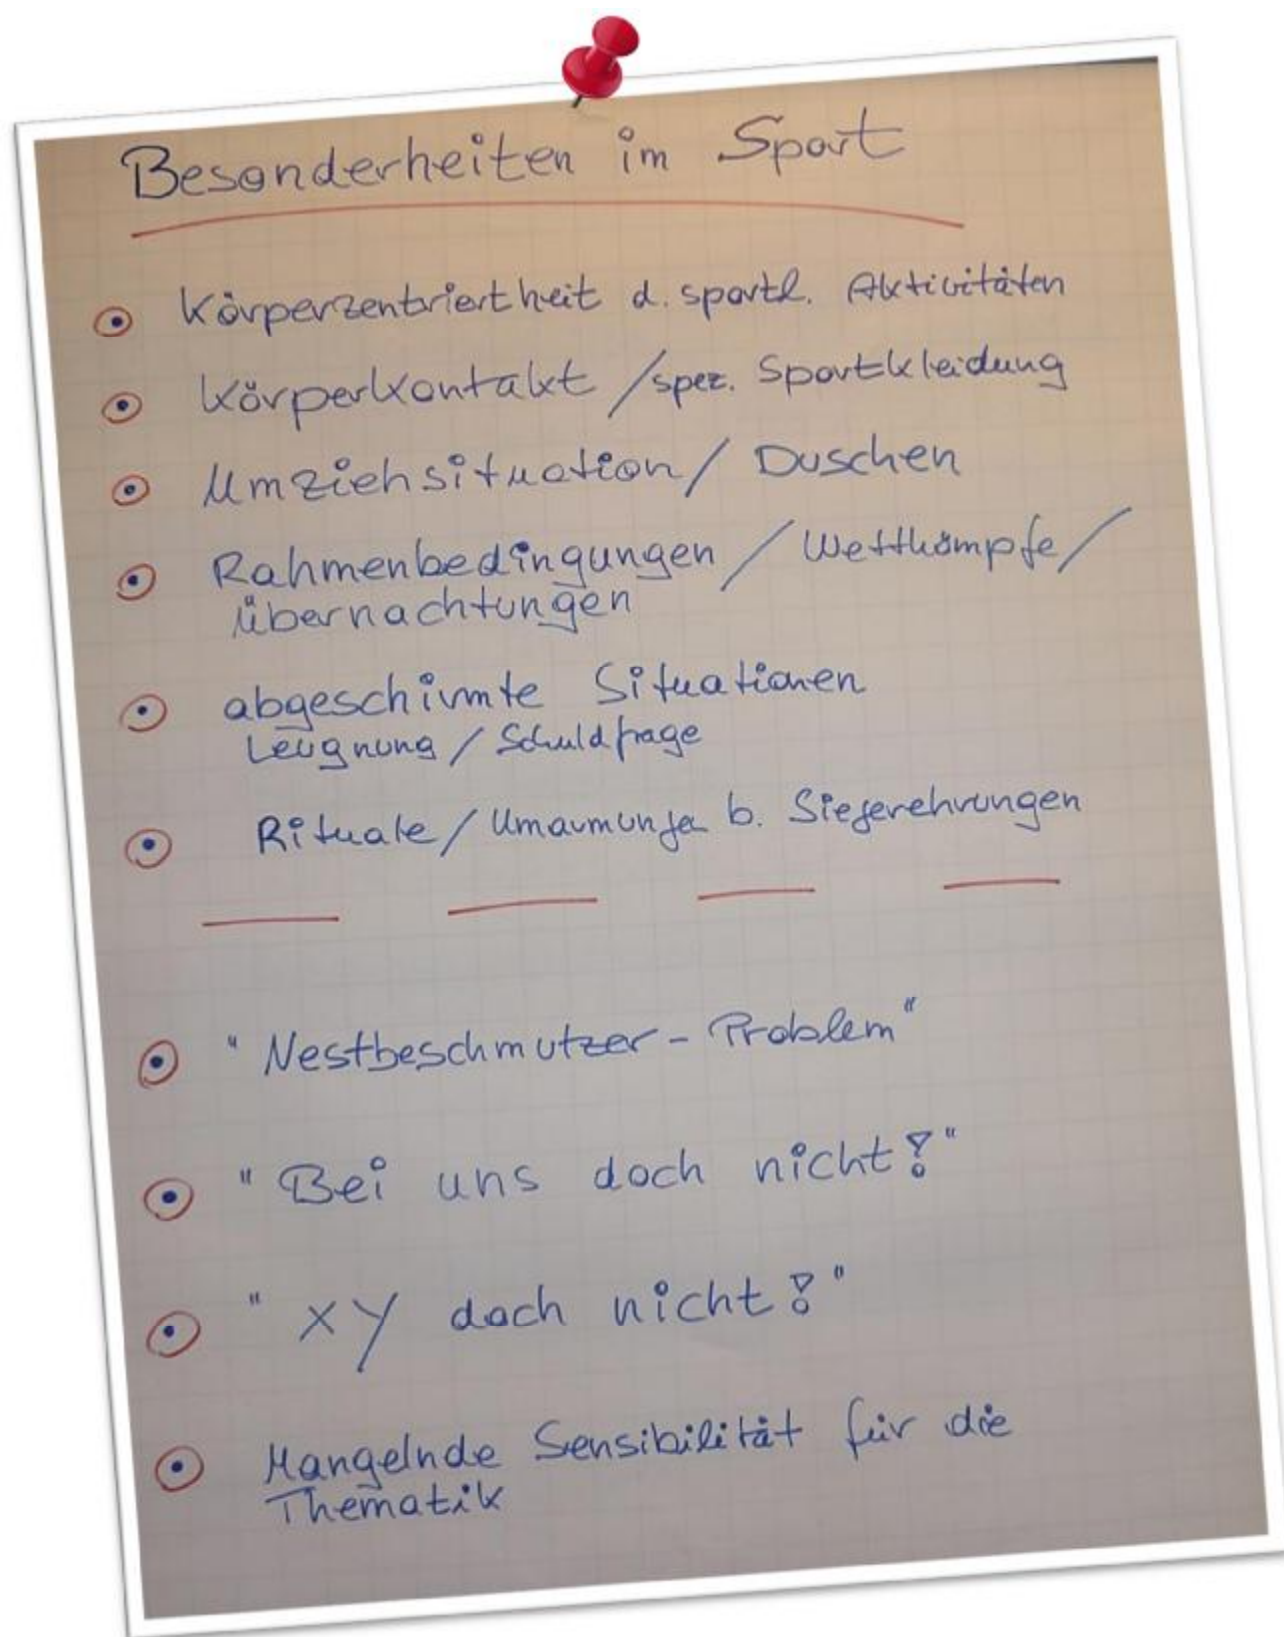 Besonderheiten im Sport
Körperzentriertheit d. sportl. Aktivitäten
Körperkontakt / spez. Sportkleidung
Umziehsituation / Duschen
Rahmenbedingungen / Wettkämpfe /
übernachtungen
abgeschirmte Situationen
Leugnung / Schuldfrage
Rituale / Umarmungen b. Siegerehrungen
"Nestbeschmutzer - Problem"
"Bei uns doch nicht!"
"XY doch nicht!"
Mangelnde Sensibilität für die
Thematik